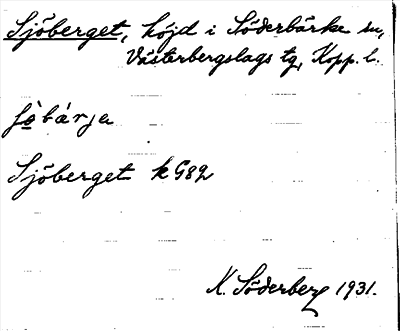 Sjöberget, höjd i Söderbärke sn,
Västerbergslags tg, Kopp. l.
Sjöberget k G82
K. Söderberg 1931.